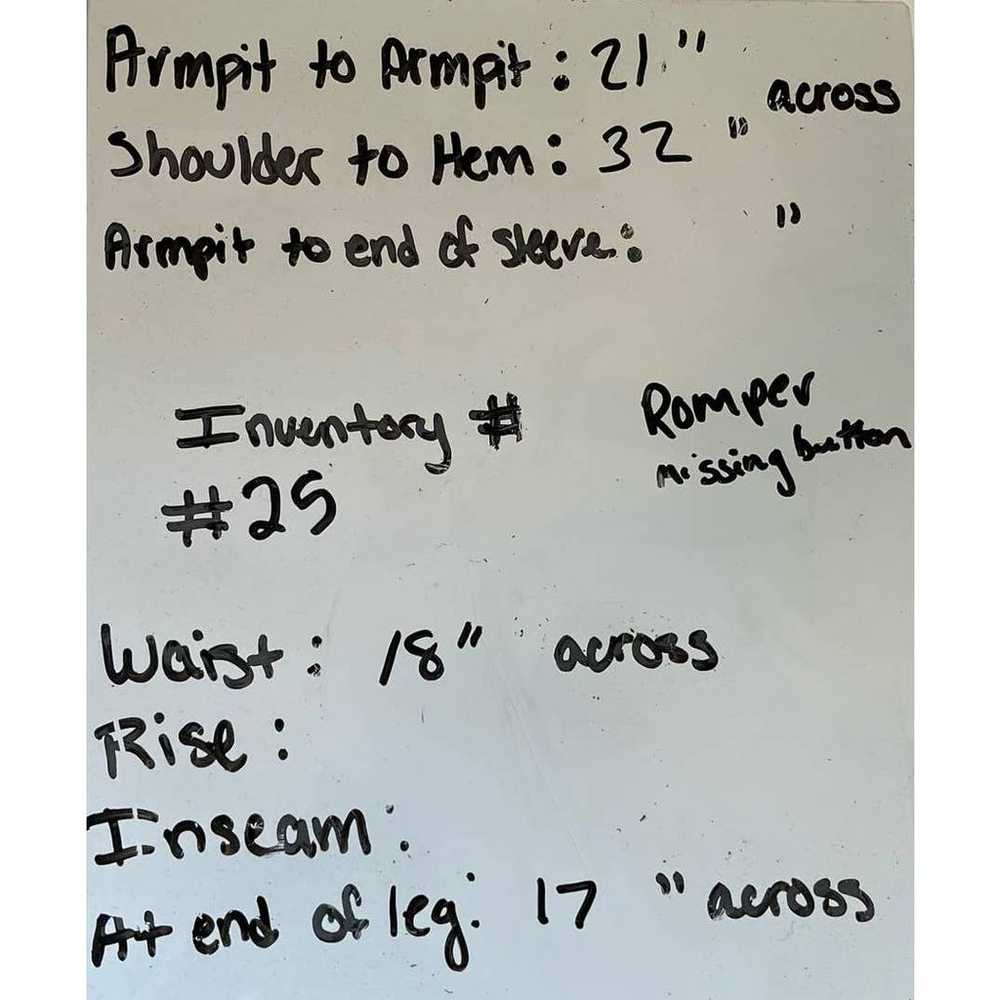 Armpit to Armpit: 21" across
Shoulder to Hem: 32 "
Armpit to end of sleeve: "
Inventory #
#25
Romper
missing button
Waist: 18" across
Rise:
Inseam:
At end of leg: 17 " across